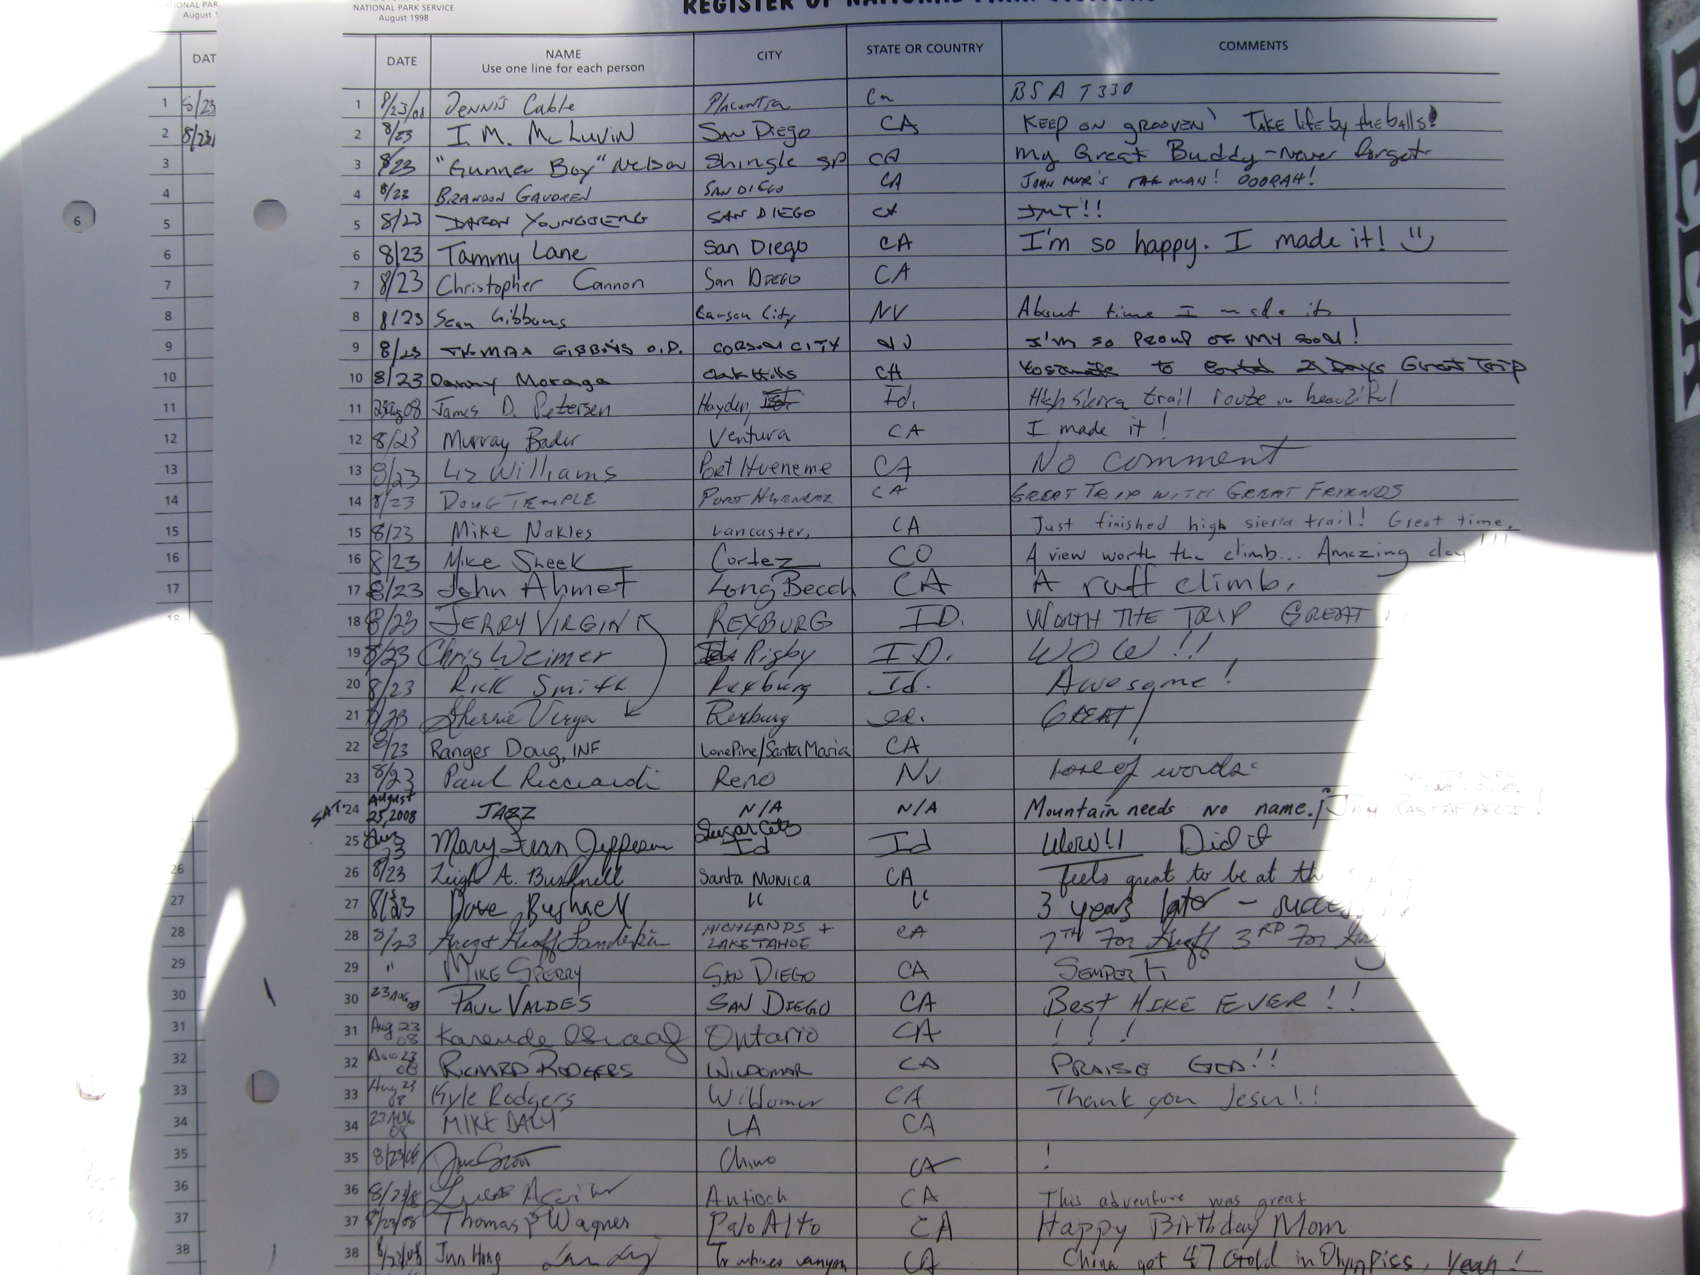 NATIONAL PARK SERVICE
August 1998
REGISTER OF NATIONAL PARK
DATE NAME CITY STATE OR COUNTRY COMMENTS
Use one line for each person
1 8/23/08 Dennis Cable Placentia Ca BSA T330
2 8/23 I. M. McLuvin San Diego CA KEEP ON grooven' Take life by the balls!
3 8/23 "Gunner Boy" Nelson Shingle sp CA My Great Buddy - Never forget
4 8/23 BRANDON GAVOREN SAN DIEGO CA JOHN MUIR'S MAN! OOORAH!
5 8/23 DARON YOUNGBERG SAN DIEGO CA JMT!!
6 8/23 Tammy Lane San Diego CA I'm so happy. I made it!
7 8/23 Christopher Cannon San Diego CA
8 8/23 Sean Gibbons Carson City NV About time I made it
9 8/23 THOMAS GIBBONS O.D. CARSON CITY NV I'm so PROUD OF MY SON!
10 8/23 Danny Moraga Oak Hills CA to 21 Days Great Trip
11 23Aug08 James D. Petersen Hayden, Id. High Sierra trail route beautiful
12 8/23 Murray Bader Ventura CA I made it!
13 8/23 Liz Williams Port Hueneme CA No comment
14 8/23 DOUG TEMPLE PORT HUENEME CA GREAT TRIP WITH GREAT FRIENDS
15 8/23 Mike Nokles Lancaster, CA Just finished high sierra trail! Great time.
16 8/23 Mike Sheek Cortez CO A view worth the climb... Amazing day!!!
17 8/23 John Ahmet Long Beach CA A ruff climb.
18 8/23 JERRY VIRGIN REXBURG ID. WORTH THE TRIP GREAT
19 8/23 Chris Weimer Rigby ID. WOW!!
20 8/23 Rick Smith Rexburg Id. Awesome!
21 8/23 Sherrie Virgin Rexburg GREAT!
22 8/23 Ranger Doug, INF Lone Pine/Santa Maria CA
23 8/23 Paul Ricciardi Reno NV. of words
SAT. 24 August 23, 2008 JAZZ N/A N/A Mountain needs no name.
25 Aug 23 Mary Fran Jeppesen Sugar City Id Id Wow!! Did it
26 8/23 Leigh A. Bushnell Santa Monica CA Feels great to be at th
27 8/23 Dave Bushnell " " 3 years later - success
28 8/23 HIGHLANDS + LAKE TAHOE CA 7TH FOR 3RD FOR
29 " MIKE SPERRY SAN DIEGO CA SEMPER FI
30 23 Aug 08 PAUL VALDES SAN DIEGO CA Best HIKE EVER!!
31 Aug 23 08 Ontario CA !!!
32 Aug 23 08 RICHARD RODGERS WILDOMAR CA PRAISE GOD!!
33 Aug 23 08 Kyle Rodgers Wildomar CA Thank you Jesus!!
34 23 AUG 08 MIKE DALY LA CA
35 8/23/08 Chino CA !
36 8/23/08 Lucas Antioch CA This adventure was great
37 8/23/08 Thomas P Wagner Palo Alto CA Happy Birthday Mom
38 8/23/08 Jun Hong CA China got 47 Gold in Olympics, Yeah!